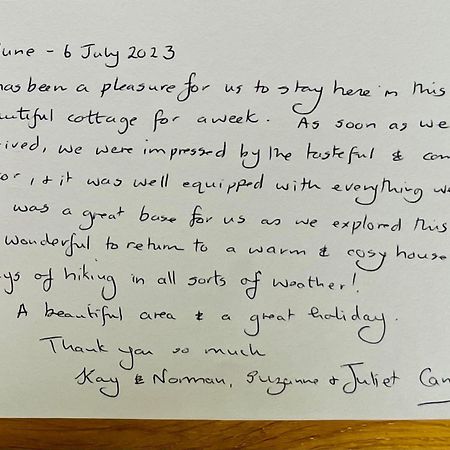 June - 6 July 2023
has been a pleasure for us to stay here in this
utiful cottage for a week. As soon as we
ived, we were impressed by the tasteful & com
or, & it was well equipped with everything we
was a great base for us as we explored this
wonderful to return to a warm & cosy house
ys of hiking in all sorts of weather!
A beautiful area & a great holiday.
Thank you so much
Kay & Norman, Suzanne & Juliet Can